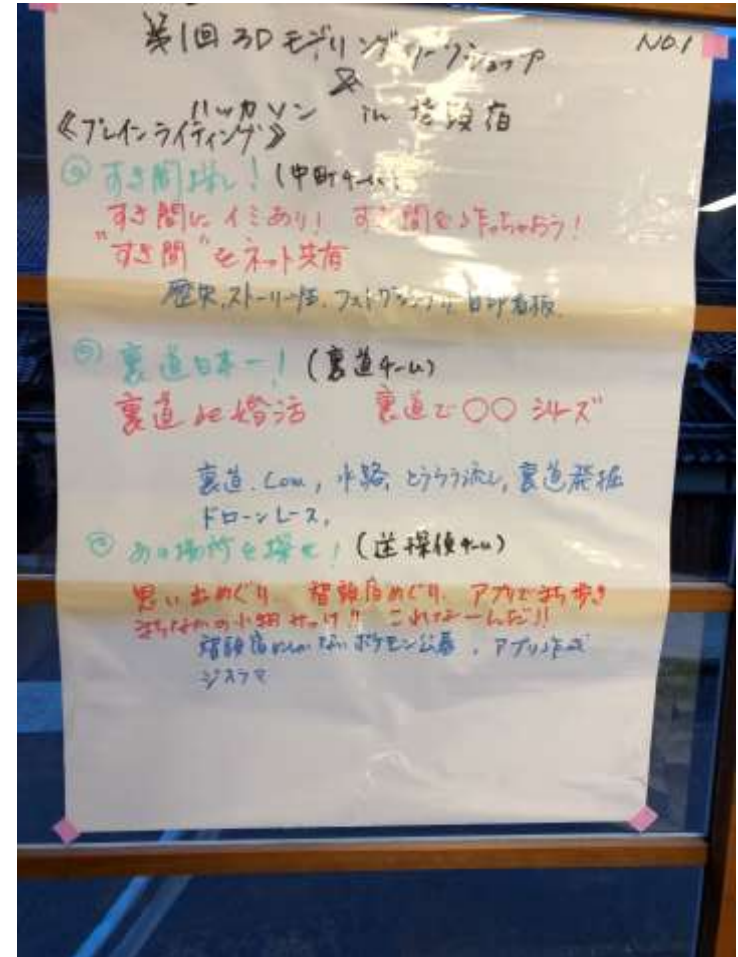 第1回 3Dモデリングワークショップ NO.1
&
ハッカソン in 智頭宿
《ブレインライティング》
すき間探し! (中町チーム)
すき間にイミあり! すき間を作っちゃおう!
"すき間"をネット共有
歴史,ストーリー性,フォトグランプリ
裏道日本一! (裏道チーム)
裏道de婚活 裏道で〇〇シリーズ
裏道.com, 水路, とうろう流し, 裏道発掘
ドローンレース,
あの場所を探せ! (迷探偵チーム)
思い出めぐり 智頭宿めぐり, アプリでまち歩き
まちなかの小物みっけ!! これなーんだ!!
智頭宿にしかないポケモン公募, アプリ作成
ジオラマ